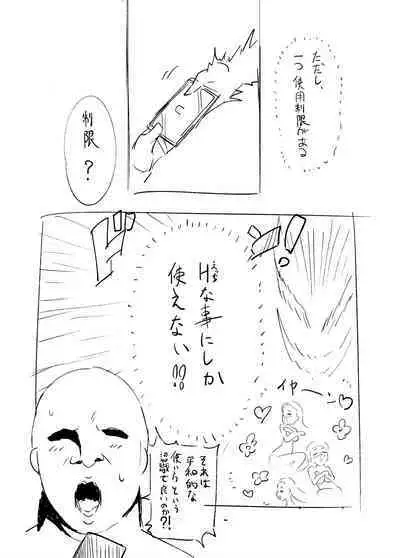 ただし、
一つ使用制限がある
制限？
Hな事にしか
えっち
使えない!?
イヤーン♡
それは
平和的な
使いろという
認識で良いのか?!